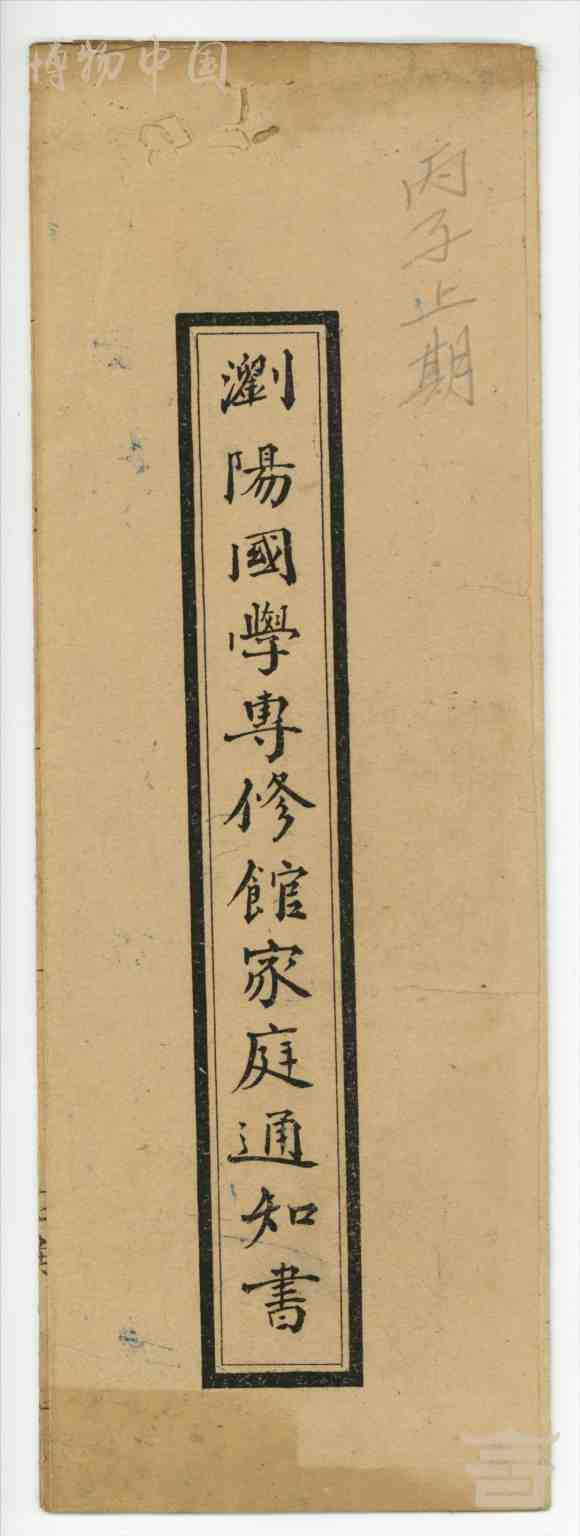 博物中国
丙子上期
瀏陽國學專修館家庭通知書